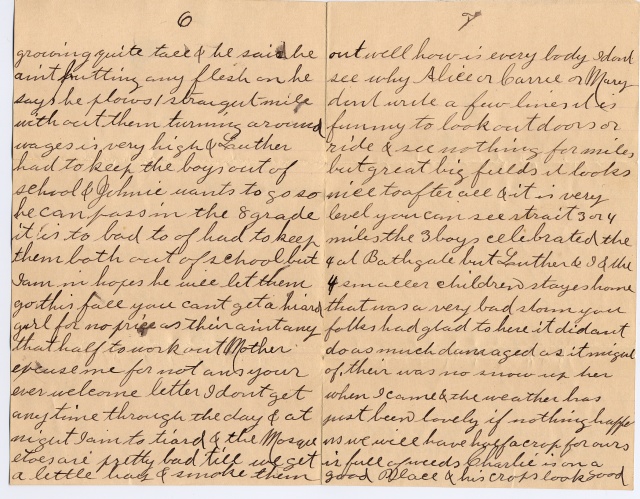 6
growing quite tall & he said he
aint putting any flesh on he
says he plows 1 straight mile
with out them turning around
wages is very high & Luther
had to keep the boys out of
school & Johnie wants to go so
he can pass in the 8 grade
it is to bad to of had to keep
them both out of school but
I am in hopes he will let them
go this fall you cant get a hiard
girl for no price as their aint any
that half to work out Mother
excuse me for not ansyour
ever welcome letter I dont get
any time through the day & at
night I am to tiard & the Mosque
etoes are pretty bad till we get
a little hay & smoke them
7
out well how is every body I dont
see why Alice or Carrie or Mary
dont write a few lines it is
funny to look out doors or
ride & see nothing for miles
but great big fields it looks
nice to after all & it is very
level you can see strait 3 or 4
miles the 3 boys celebrated the
4 at Bathgate but Luther & I & the
4 smaller children stayes home
that was a very bad storm you
folks had glad to here it did ant
do as much dammaged as it migut
of their was no snow up her
when I came & the weather has
just been lovely if nothing happe
ns we will have half a crop for ours
is full of weeds Charlie is on a
good Place & his crops look good